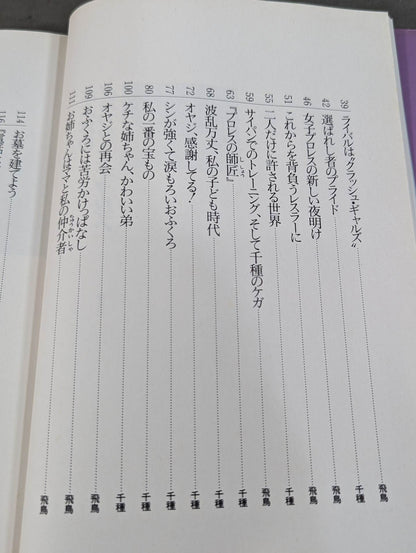 39 ライバルは〝クラッシュ・ギャルズ〟 飛鳥
42 選ばれし者のプライド 千種
46 女子プロレスの新しい夜明け 飛鳥
51 これからを背負うレスラーに 飛鳥
55 二人だけに許される世界 千種
59 サイパンでのトレーニング、そして千種のケガ 飛鳥
63 『プロレスの師匠』 飛鳥
68 波乱万丈、私の子ども時代 千種
72 オヤジ、感謝してる! 千種
77 シンが強くて涙もろいおふくろ 千種
80 私の一番の宝もの 千種
100 ケチな姉ちゃん、かわいい弟 千種
106 オヤジとの再会 飛鳥
109 おふくろには苦労かけっぱなし 飛鳥
111 お姉ちゃんはママと私の仲介者 飛鳥
114 お墓を建てよう
116